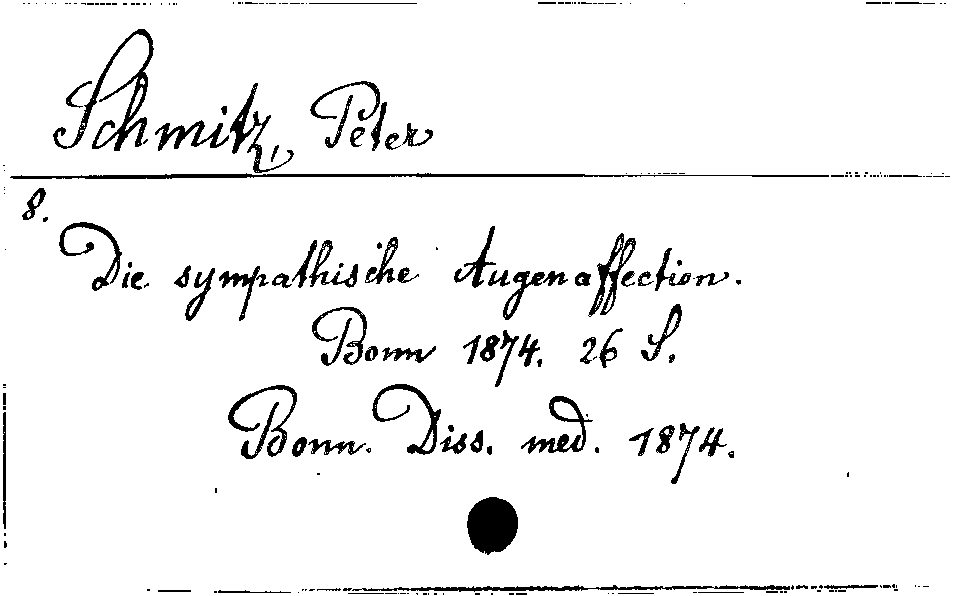 Schmitz, Peter
8.
Die sympathische Augenaffection.
Bonn 1874. 26 S.
Bonn. Diss. med. 1874.